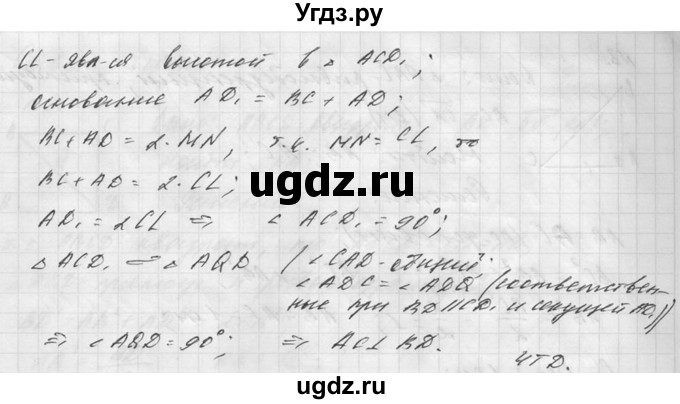 Угдз.ру
CL - явл-ся высотой в △ ACD₁;
основание AD₁ = BC + AD;
BC + AD = 2·MN, т.к. MN = CL, то
BC + AD = 2·CL;
ugdz.ru
AD₁ = 2CL ⇒ ∠ACD₁ = 90°;
△ACD₁ ∽ △AQD (∠CAD - общий;
∠ADC = ∠ADQ (соответствен-
ные при BD∥CD₁ и секущей AD₁))
⇒ ∠AQD = 90°; ⇒ AC⊥BD.
ЧТД.
ugdz.ru